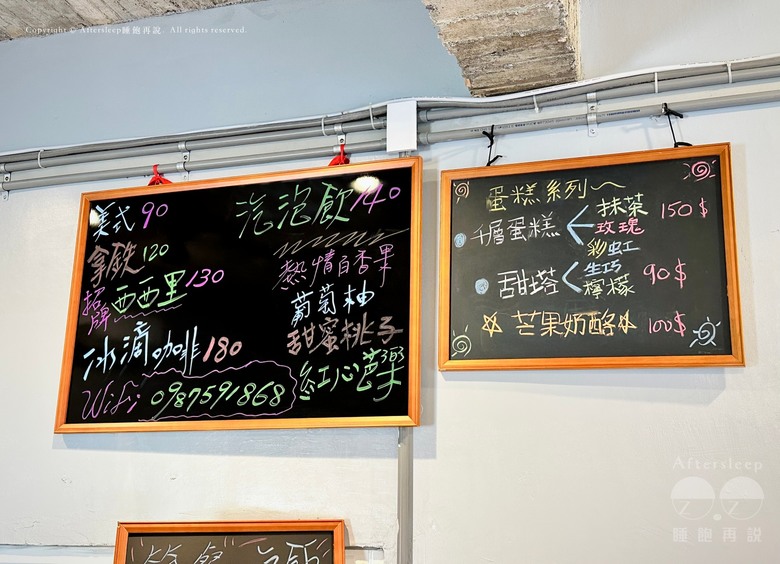 Copyright © Aftersleep睡飽再說 All rights reserved.
美式90
拿鐵120
招牌西西里130
冰滴咖啡180
Wifi: 0987591868
氣泡飲140
熱情百香果
葡萄柚
甜蜜桃子
紅心芭樂
蛋糕系列~
千層蛋糕 抹茶 玫瑰 彩虹 150$
甜塔 生巧 檸檬 90$
芒果奶酪 100$
Aftersleep
睡飽再說